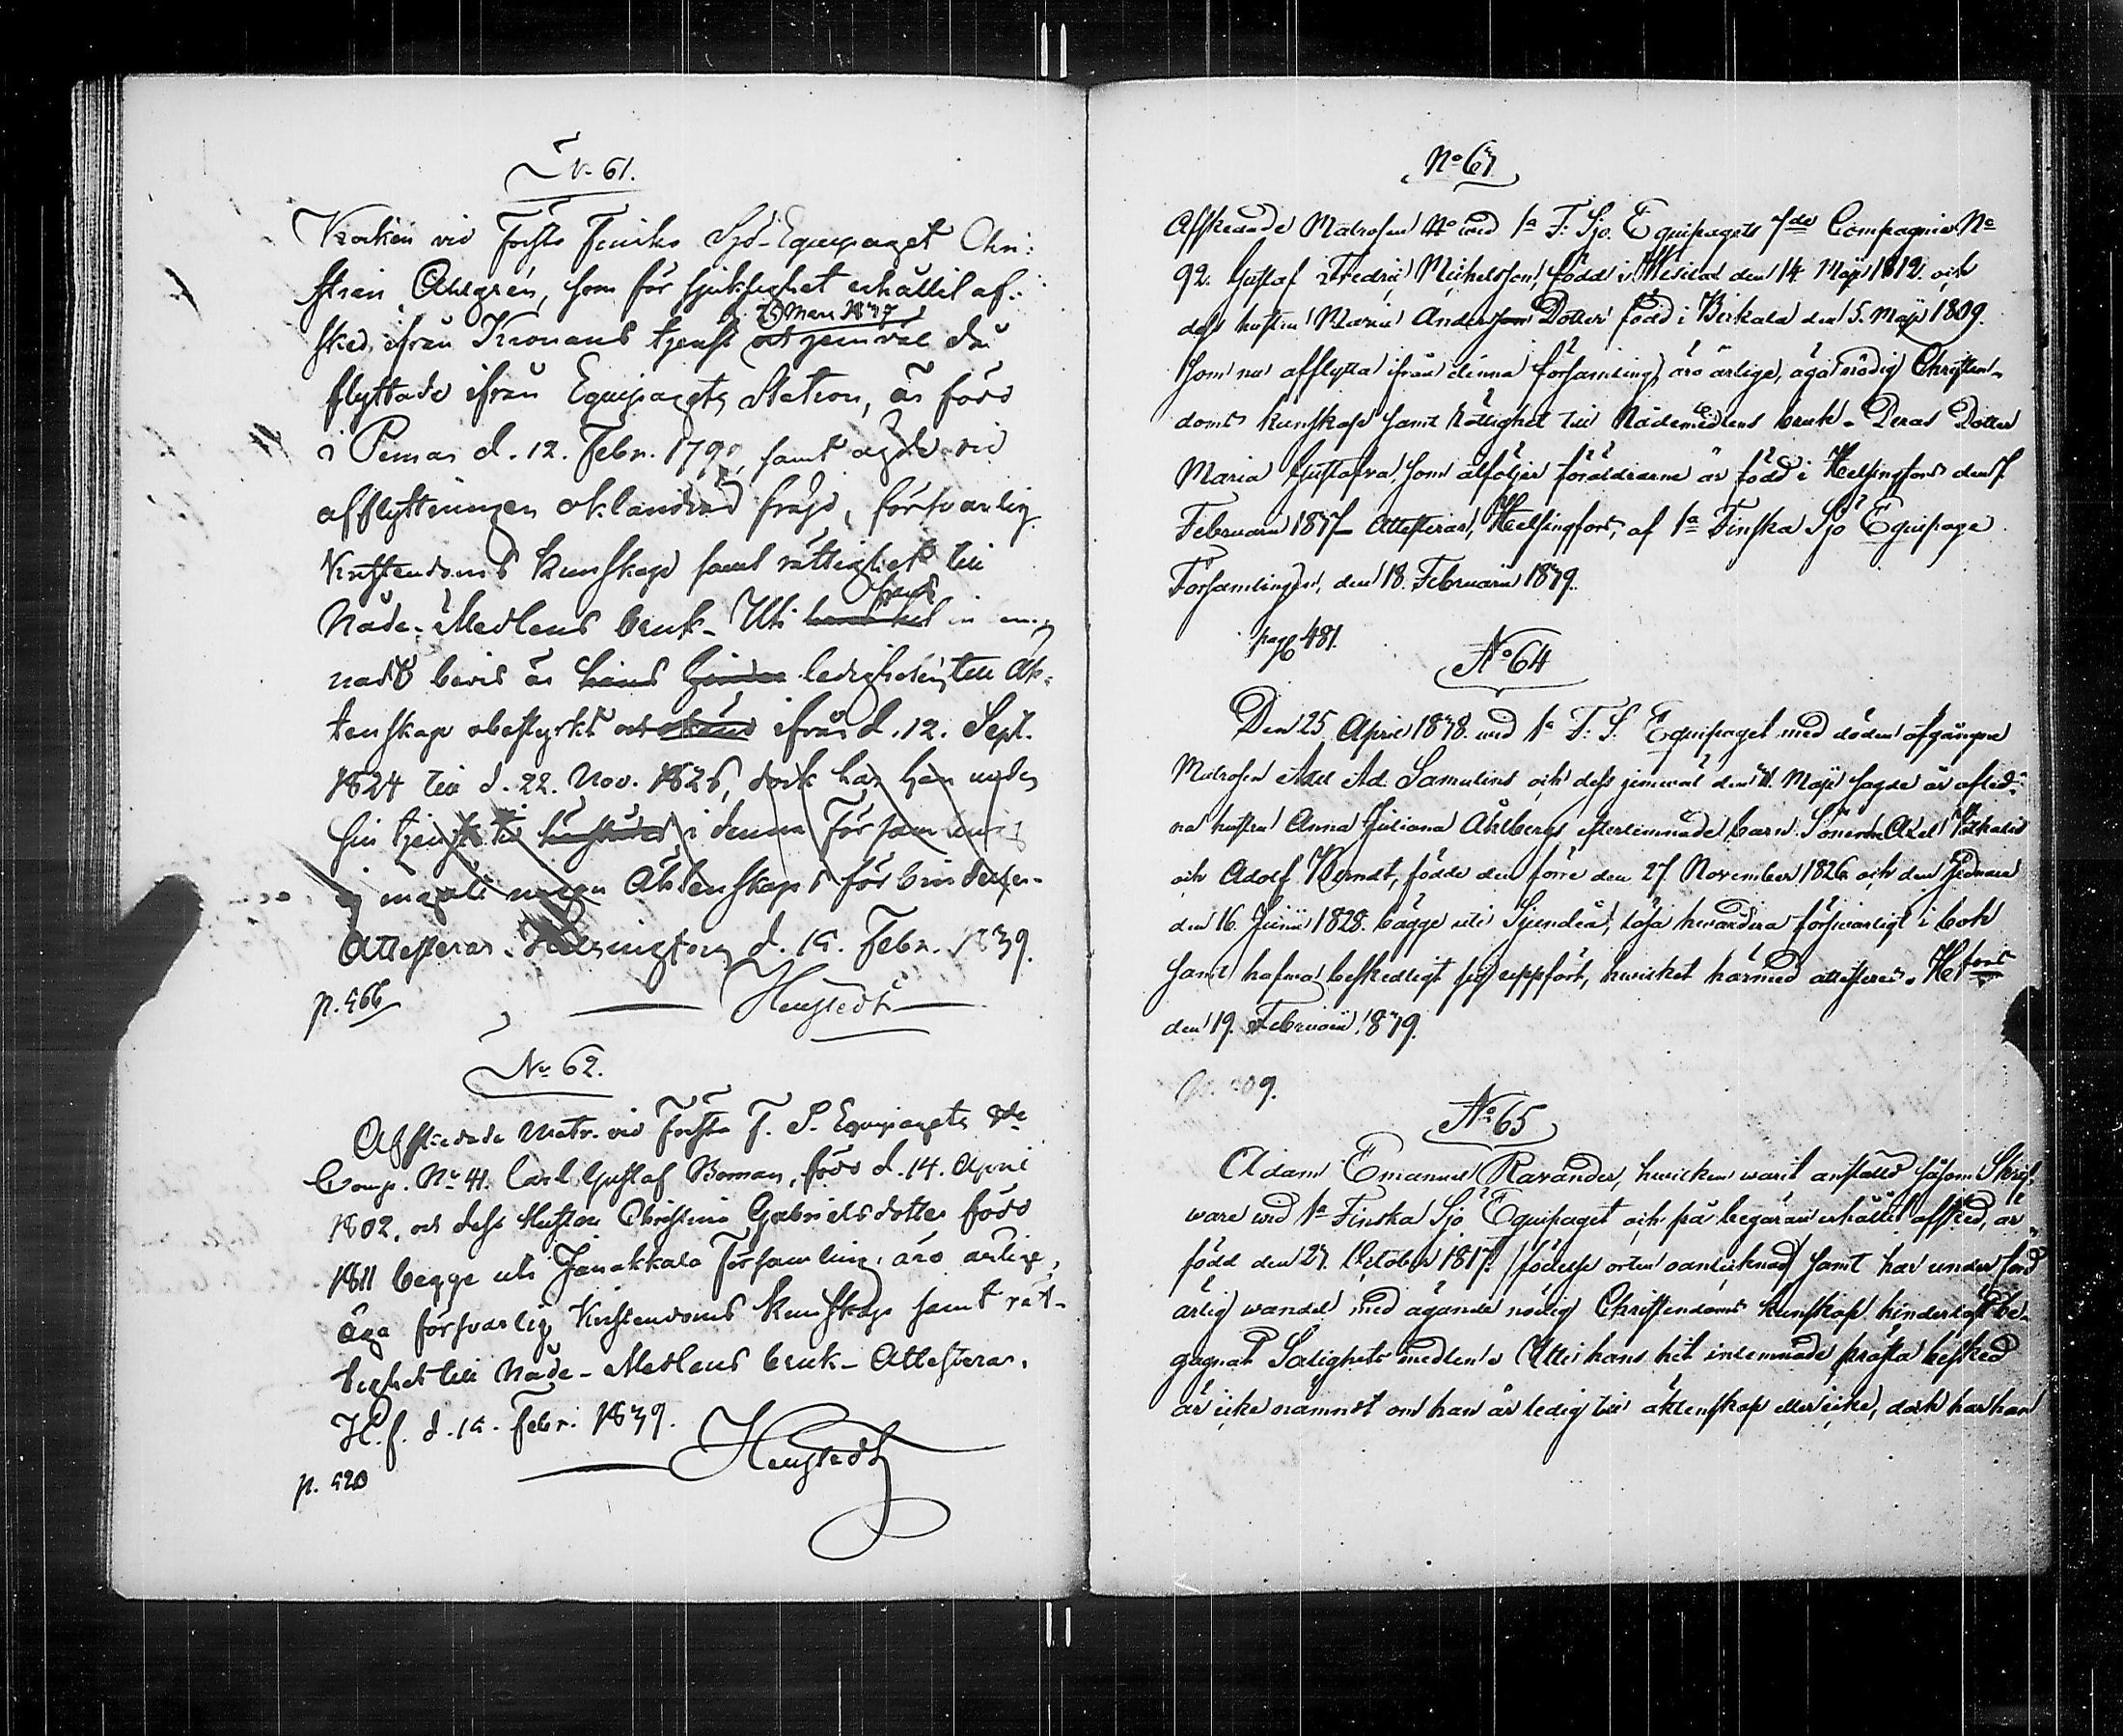 No 61.
Kocken vid Första Finska Sjö-Equipaget Chri-
stian Ahlgrén, som för sjuklighet erhållit af-
d. 23 Mars 1837
sked ifrån Kronans tjenst och jemväl då
flyttade ifrån Equipagets Station, är född
i Pemar d. 12. Febr. 1790, samt ägde vid
afflyttningen oklandrad fräjd, försvarlig
Kristendoms kunskap samt rättighet till
Nåde-Medlens bruk. Uti
hans
bevis är ledigheten till Äk-
tenskap obestyrkt ifrån d. 12. Sept.
1824 till d. 22. Nov. 1826, dock har han under
sin tjenste tid i denna Församling
ej ingått någon Äktenskaps förbindelse.
Attesteras. Helsingfors d. 15. Febr. 1839.
p. 466 Henstedt
No 62.
Afskedade Matr. vid Första F. S. Equipagets
Comp. No 41. Carl Gustaf Boman, född d. 14. April
1802, och dess Hustru Christina Gabrielsdotter född
1811 begge uti Janakkala Församling, äro ärlige,
äga försvarlig Kristendoms kunskap samt rät-
tighet till Nåde-Medlens bruk. Attesteras.
H.f. d. 15. Febr. 1839.
Henstedt
p. 520
No 63
Afskedade Matrosen wid 1a F. Sjö Equipagets 7de Compagnie No
92. Gustaf Fredric Michelsson, född i Wesilax den 14 Maji 1812. och
dess hustru Maria Anders Dotter född i Birkala den 5. Maji 1809.
som nu afflytta ifrån denna församling, äro ärlige, äga nödig Christen-
doms kunskap samt rättighet till Nådemedlens bruk. Deras Dotter
Maria Gustafva som åtföljer föräldrarne är född i Helsingfors den 7.
Februarii 1837. Attesterar, Helsingfors, af 1a Finska Sjö Equipage
Församlingen, den 18. Februarii 1839.
pag 481.
No 64
Den 25 April 1838. wid 1a F. S. Equipaget med döden afgångne
Matrosen Axel Ad. Samulins och dess jemwäl den Maji sagde år aflid-
na hustru Anna Juliana Ahlbergs efterlemnade barn Sönerne Axel
och Adolf Berndt, födde den förre den 27 November 1826 och den sednare
den 16. Junii 1828. bägge uti Sjundeå, läsa hwardera försvarligt i bok
samt hafwa beskedligt sig uppfört, hwilket härmed attesteres. H:fors
den 19. Februarii 1839.
No 65
Adam Emanuel Ravander, hwilken warit anställd såsom Skrif-
ware wid 1a Finska Sjö Equipaget och på begäran erhållit afsked, är
född den 27. October 1817. (födelse orten oantecknad) samt har under förd
ärlig wandel med ägande nödig Christendoms kunskap hinderlöst be-
gagnat Salighets medlen. Uti hans hit inlemnade prästa besked
är icke nämndt om han är ledig till äktenskap eller icke, dock har han